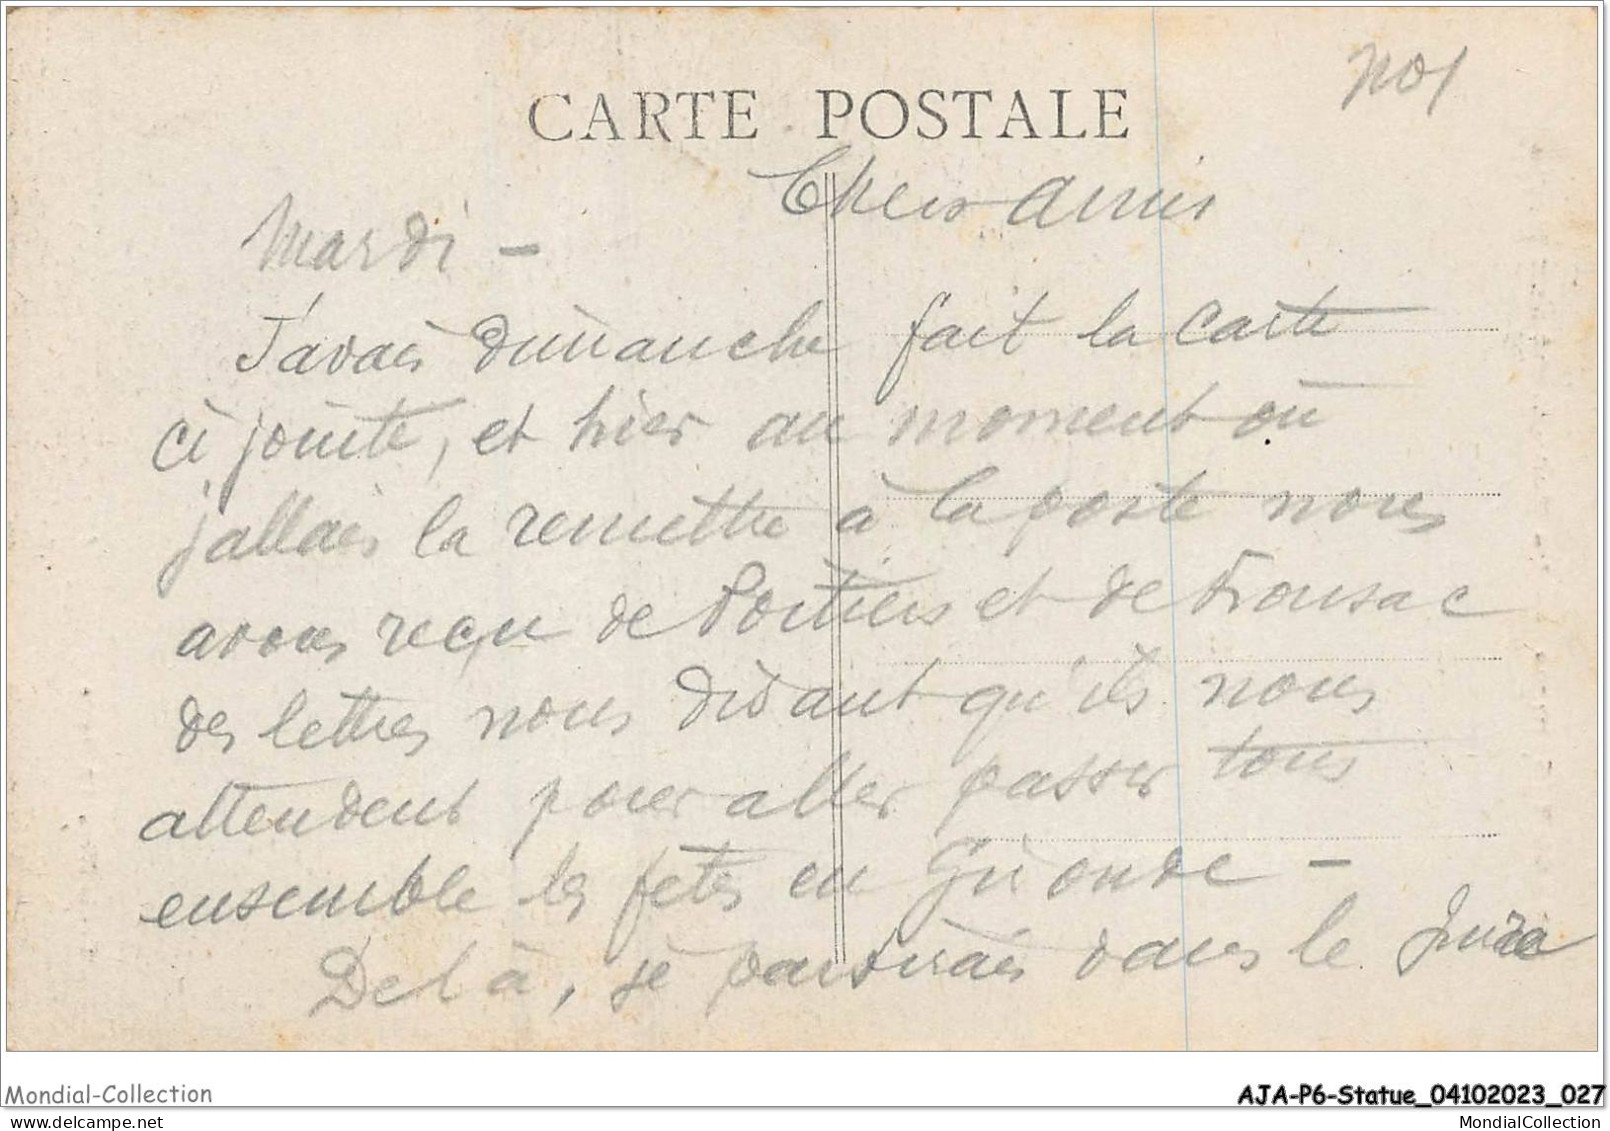 N01
CARTE POSTALE
Chers Amis
Mardi –
J'avais dimanche fait la carte
ci jointe, et hier au moment où
j'allais la remettre à la poste nous
avons reçu de Poitiers et de Fronsac
des lettres nous disant qu'ils nous
attendent pour aller passer tous
ensemble les fêtes en Gironde –
De là, je partirais dans le Jura
Mondial-Collection
AJA-P6-Statue_04102023_027
www.delcampe.net
MondialCollection